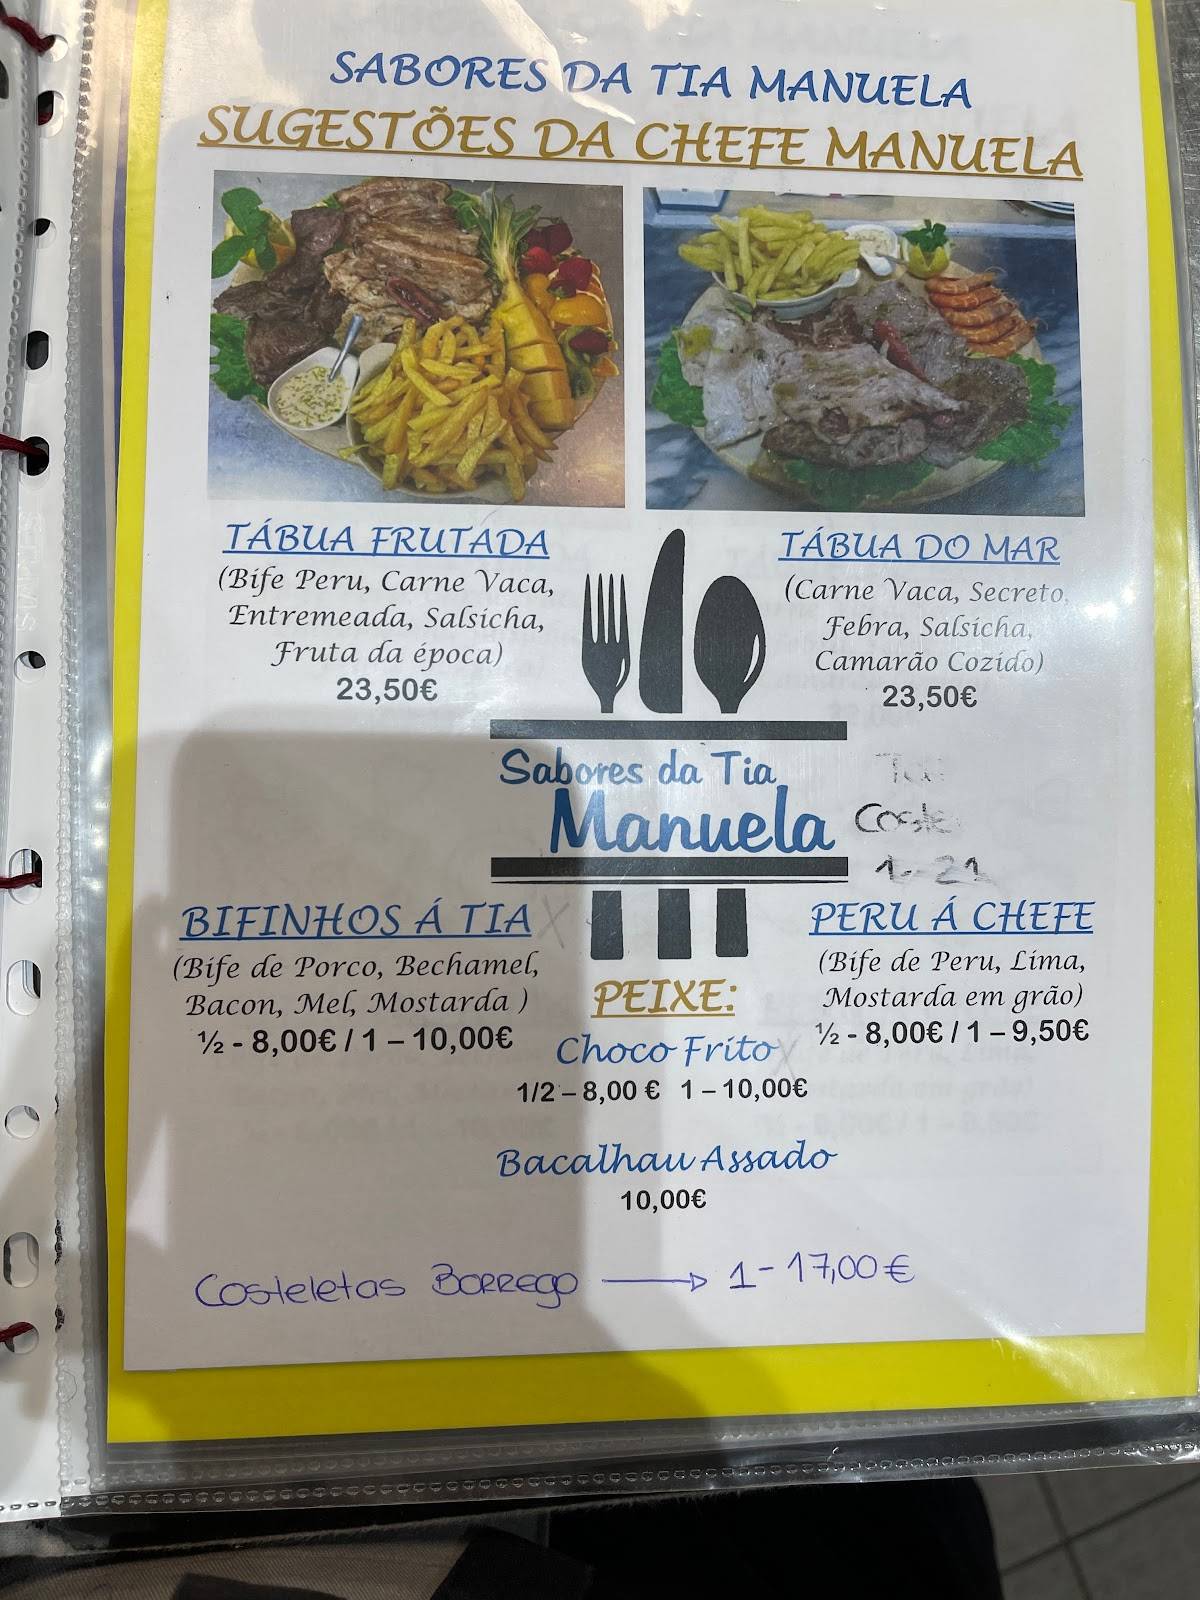 SABORES DA TIA MANUELA
SUGESTÕES DA CHEFE MANUELA
TÁBUA FRUTADA
(Bife Peru, Carne Vaca,
Entremeada, Salsicha,
Fruta da época)
23,50€
TÁBUA DO MAR
(Carne Vaca, Secreto,
Febra, Salsicha,
Camarão Cozido)
23,50€
Sabores da Tia
Manuela
BIFINHOS Á TIA
(Bife de Porco, Bechamel,
Bacon, Mel, Mostarda )
½ - 8,00€ / 1 – 10,00€
PERU Á CHEFE
(Bife de Peru, Lima,
Mostarda em grão)
½ - 8,00€ / 1 – 9,50€
PEIXE:
Choco Frito
1/2 – 8,00 € 1 – 10,00€
Bacalhau Assado
10,00€
Costeletas Borrego → 1 - 17,00€
STAPLES